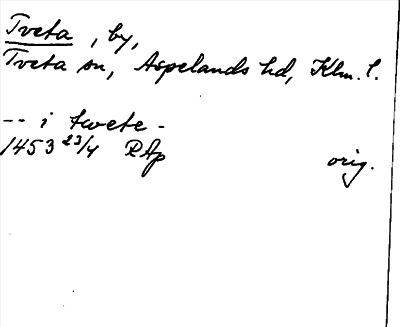 Tveta, by,
Tveta sn, Aspelands hd, Klm. l.
-- i twete -
1453 23/4 RAp orig.